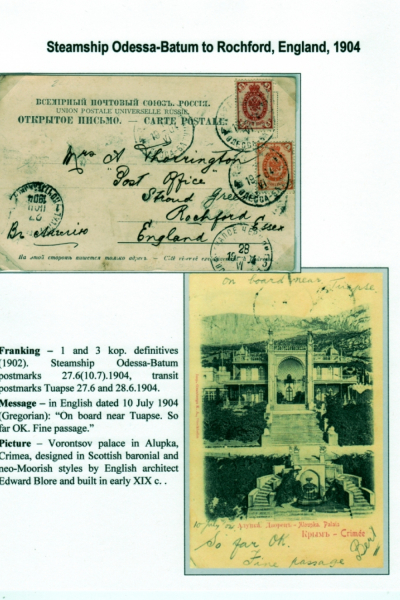 Steamship Odessa-Batum to Rochford, England, 1904
ВСЕМІРНЫЙ ПОЧТОВЫЙ СОЮЗЪ. РОССІЯ.
UNION POSTALE UNIVERSELLE RUSSIE.
ОТКРЫТОЕ ПИСЬМО. — CARTE POSTALE.
Mrs A Thorrington
"Post Office"
Stroud Green
Rochford Essex
England
Въ Англію
28
On board near Tuapse
Franking – 1 and 3 kop. definitives
(1902). Steamship Odessa-Batum
postmarks 27.6(10.7).1904, transit
postmarks Tuapse 27.6 and 28.6.1904.
Message – in English dated 10 July 1904
(Gregorian): “On board near Tuapse. So
far OK. Fine passage.”
Picture – Vorontsov palace in Alupka,
Crimea, designed in Scottish baronial and
neo-Moorish styles by English architect
Edward Blore and built in early XIX c. .
10 July
Крымъ – Crimée
So far OK.
Fine passage